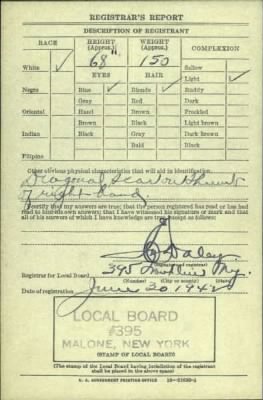 REGISTRAR'S REPORT
DESCRIPTION OF REGISTRANT
RACE HEIGHT (Approx.) WEIGHT (Approx.) COMPLEXION
68 150
White ✓ Sallow
EYES HAIR Light ✓
Negro Blue ✓ Blonde ✓ Ruddy
Gray Red Dark
Oriental Hazel Brown Freckled
Brown Black Light brown
Indian Black Gray Dark brown
Bald Black
Filipino
Other obvious physical characteristics that will aid in identification
Diagonal Scar on thumb
of right hand
I certify that my answers are true; that the person registered has read or has had
read to him his own answers; that I have witnessed his signature or mark and that
all of his answers of which I have knowledge are true, except as follows:
Daley
(Signature of registrar)
Registrar for Local Board 395 Franklin N.Y.
(Number) (City or county) (State)
Date of registration June 30 1942
LOCAL BOARD
#395
MALONE, NEW YORK
(STAMP OF LOCAL BOARD)
(The stamp of the Local Board having jurisdiction of the registrant
shall be placed in the above space)
U. S. GOVERNMENT PRINTING OFFICE